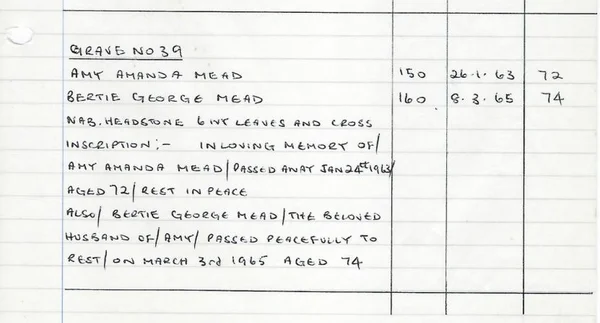 GRAVE NO 39
AMY AMANDA MEAD 150 26.1.63 72
BERTIE GEORGE MEAD 160 8.3.65 74
NAB. HEADSTONE 6 IVY LEAVES AND CROSS
INSCRIPTION:- IN LOVING MEMORY OF/
AMY AMANDA MEAD/PASSED AWAY JAN 24st 1963/
AGED 72/REST IN PEACE
ALSO/ BERTIE GEORGE MEAD/THE BELOVED
HUSBAND OF/AMY/ PASSED PEACEFULLY TO
REST/ON MARCH 3rd 1965 AGED 74